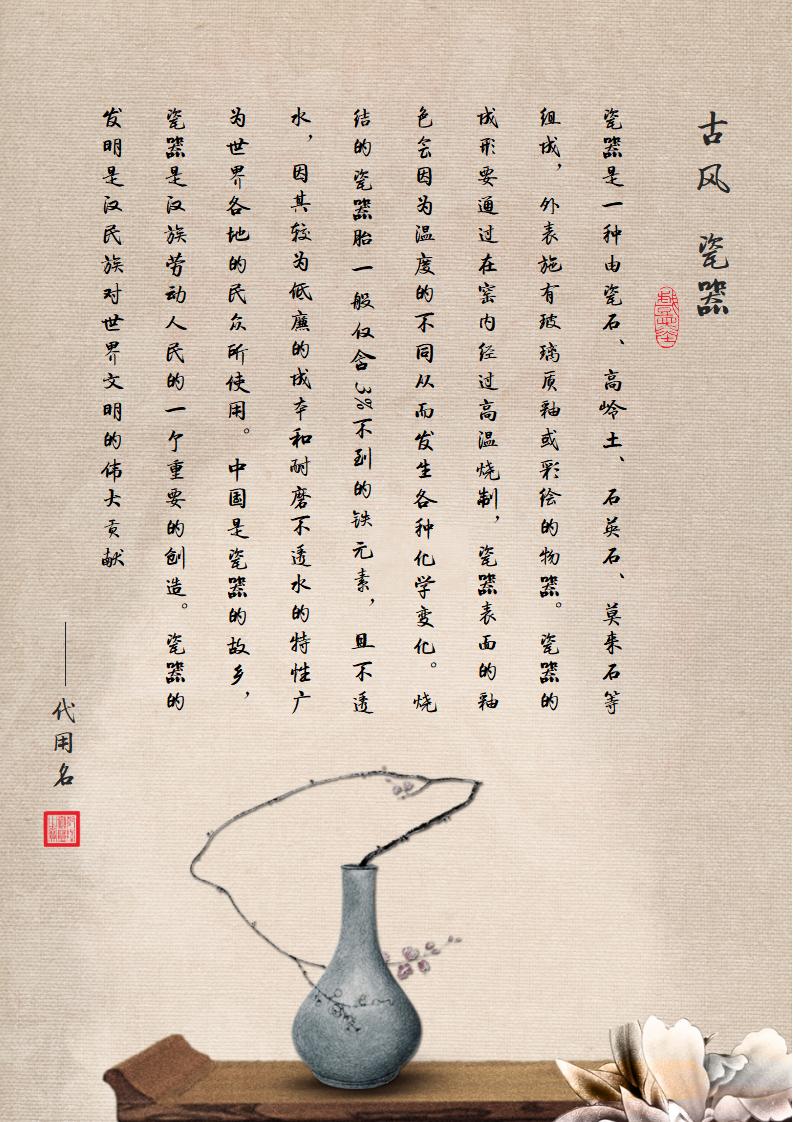 古风 瓷器
瓷器是一种由瓷石、高岭土、石英石、莫来石等
组成，外表施有玻璃质釉或彩绘的物器。瓷器的
成形要通过在窑内经过高温烧制，瓷器表面的釉
色会因为温度的不同从而发生各种化学变化。烧
结的瓷器胎一般仅含3%不到的铁元素，且不透
水，因其较为低廉的成本和耐磨不透水的特性广
为世界各地的民众所使用。中国是瓷器的故乡，
瓷器是汉族劳动人民的一个重要的创造。瓷器的
发明是汉民族对世界文明的伟大贡献
——代用名